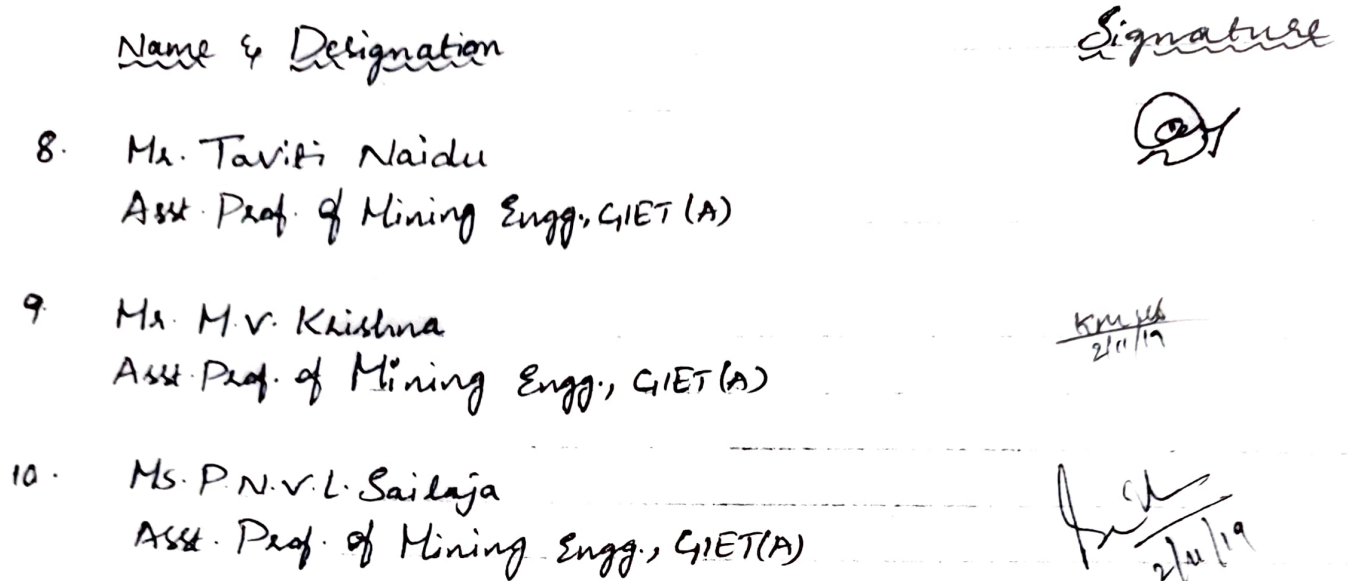 Name & Designation Signature
8. Mr. Taviti Naidu
Asst. Prof. of Mining Engg., GIET (A)
9. Mr. M.V. Krishna
Asst. Prof. of Mining Engg., GIET (A)
2/11/19
10. Ms. P.N.V.L. Sailaja
Asst. Prof. of Mining Engg., GIET(A)
2/11/19